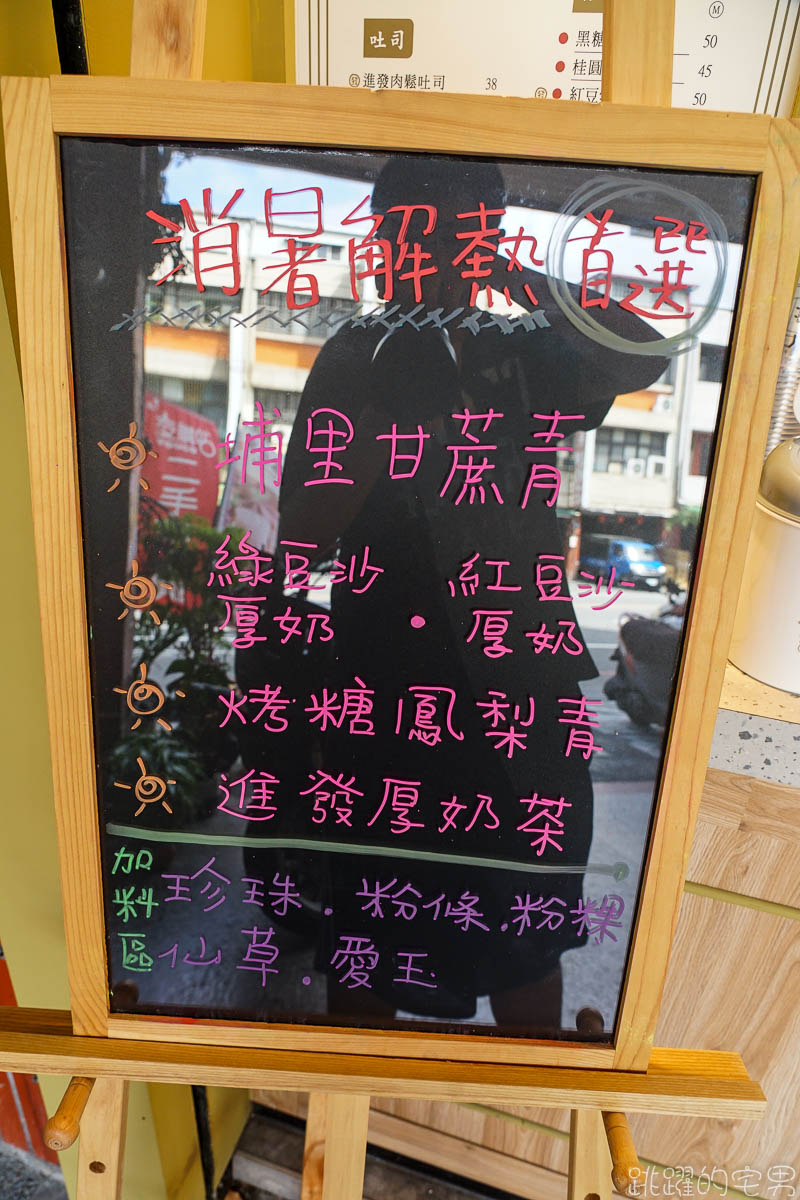 吐司
進發肉鬆吐司 38
M
黑糖 50
桂圓 45
紅豆 50
消暑解熱 首選
埔里甘蔗青
綠豆沙厚奶・紅豆沙厚奶
烤糖鳳梨青
進發厚奶茶
加料區
珍珠.粉條.粉粿
仙草.愛玉
二手
跳躍的宅男